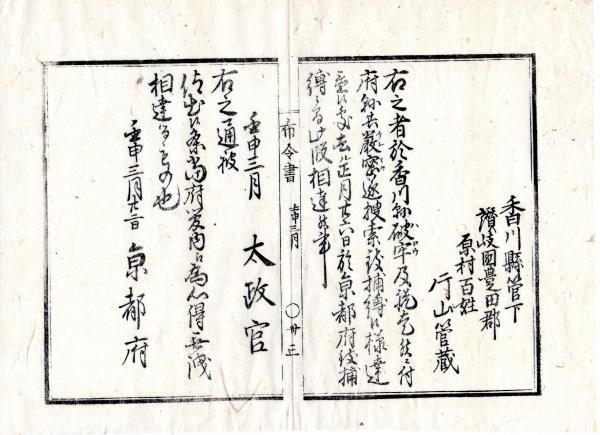 香川縣管下
讃岐國豊田郡
原村百姓
片山管蔵
右之者於香川縣破牢及脱走候ニ付
府縣共嚴密遂捜索致捕縛候様達
置候處去ル正月廿六日於京都府致捕
縛候旨此段相達候事
布令書
壬申三月
〇廿三
壬申三月
太政官
右之通被
仰出候条當府管内江為心得無洩
相達るもの也
壬申三月廿二日
京都府